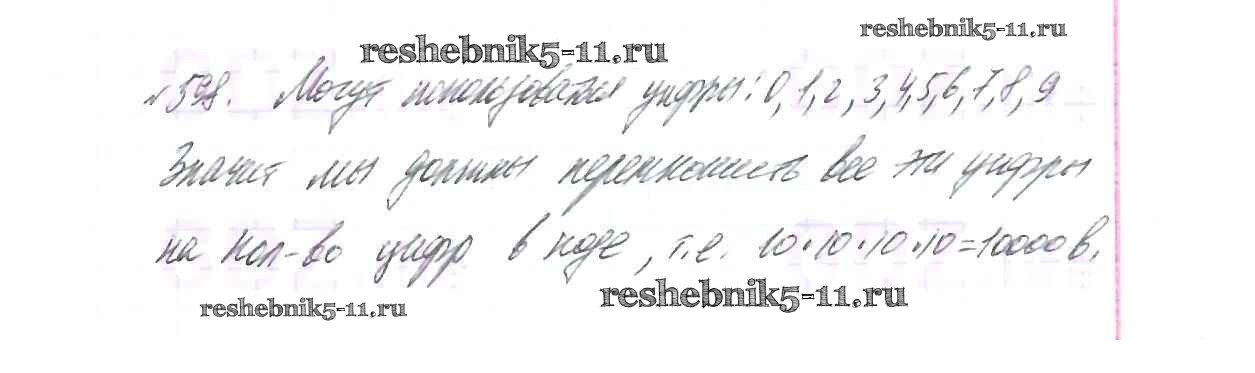 reshebnik5-11.ru
reshebnik5-11.ru
№598. Могут использоваться цифры: 0,1,2,3,4,5,6,7,8,9
Значит мы должны перемножить все эти цифры
на кол-во цифр в коде, т.е. 10·10·10·10=10000в.
reshebnik5-11.ru
reshebnik5-11.ru